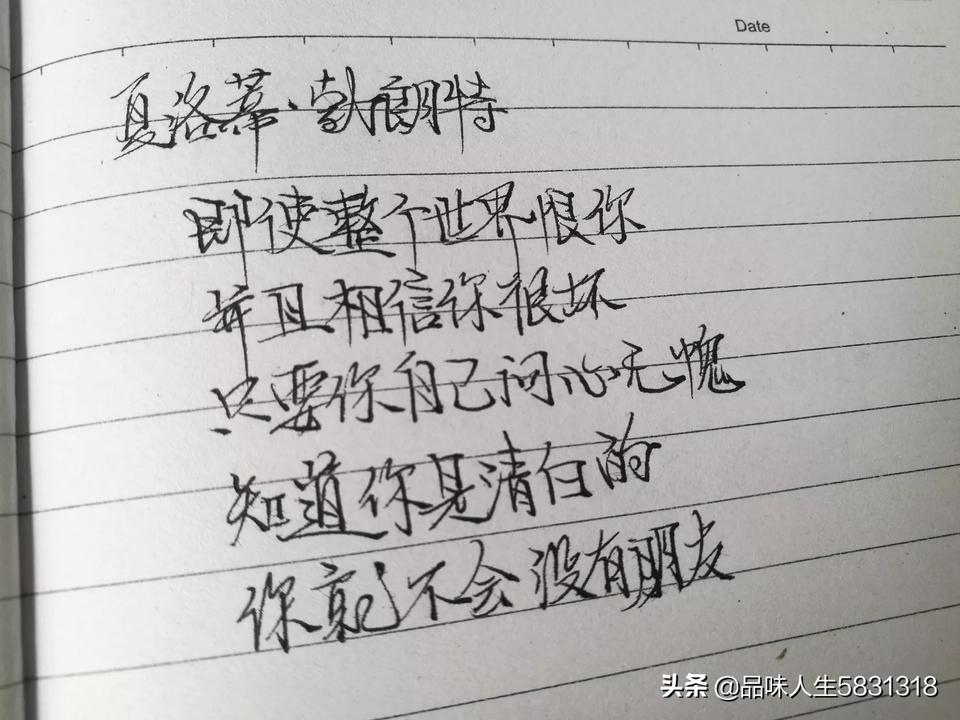 Date
夏洛蒂·勃朗特
即使整个世界恨你
并且相信你很坏
只要你自己问心无愧
知道你是清白的
你就不会没有朋友
头条 @品味人生5831318